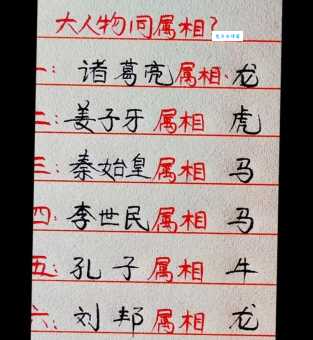 大人物同属相?
一: 诸葛亮属相:龙
二: 姜子牙属相 虎
三: 秦始皇属相 马
四: 李世民属相 马
五: 孔子属相 牛
六: 刘邦属相 龙